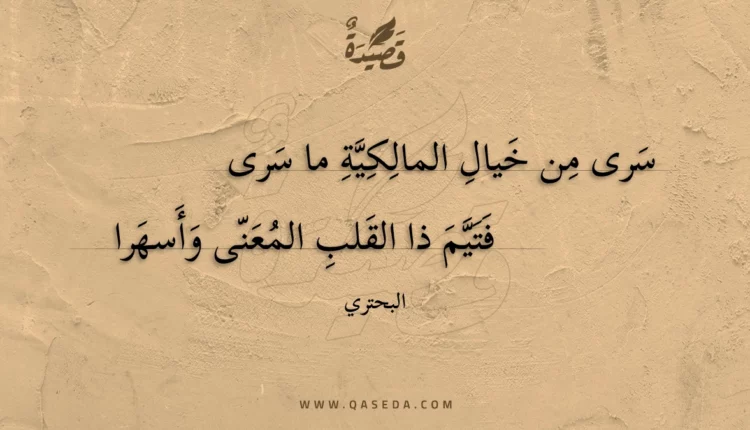 قَصِيدَةٌ
سَرى مِن خَيالِ المالِكِيَّةِ ما سَرى
فَتَيَّمَ ذا القَلبِ المُعَنّى وَأَسهَرا
البحتري
WWW.QASEDA.COM